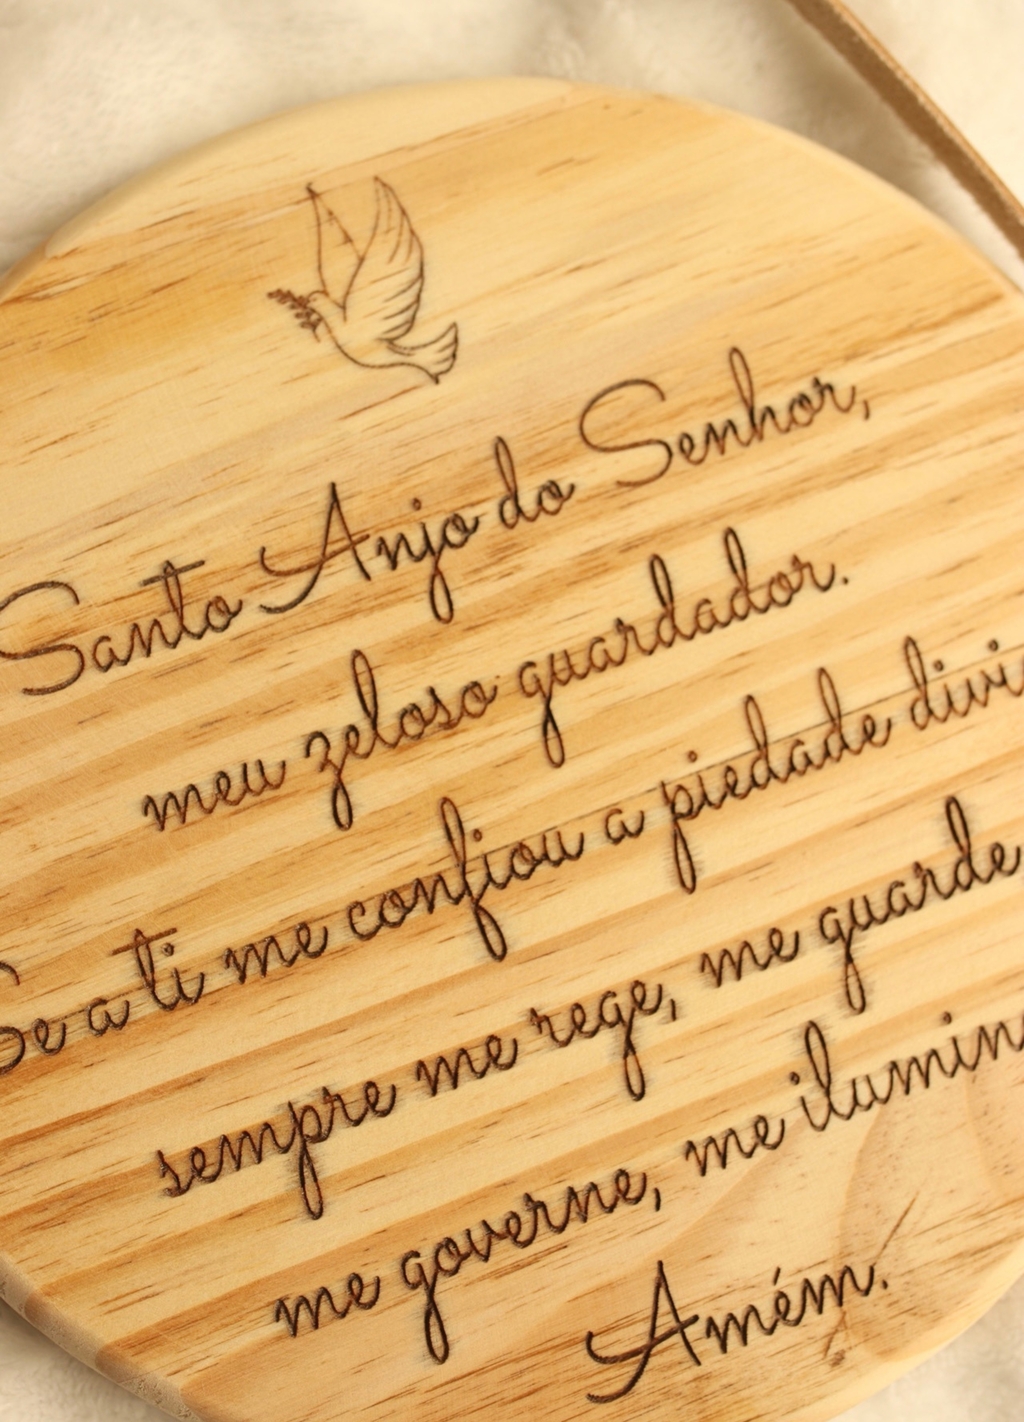 Santo Anjo do Senhor,
meu zeloso guardador.
Se a ti me confiou a piedade divi
sempre me rege, me guarde
me governe, me ilumin
Amém.